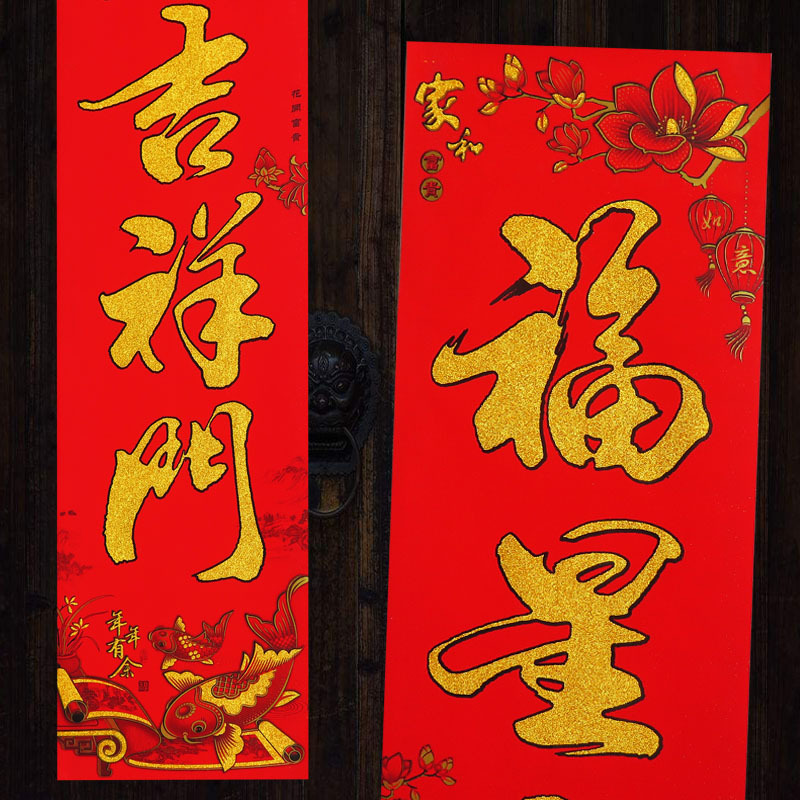 家和
富貴
如意
福星
吉祥門
花開富貴
年年有余